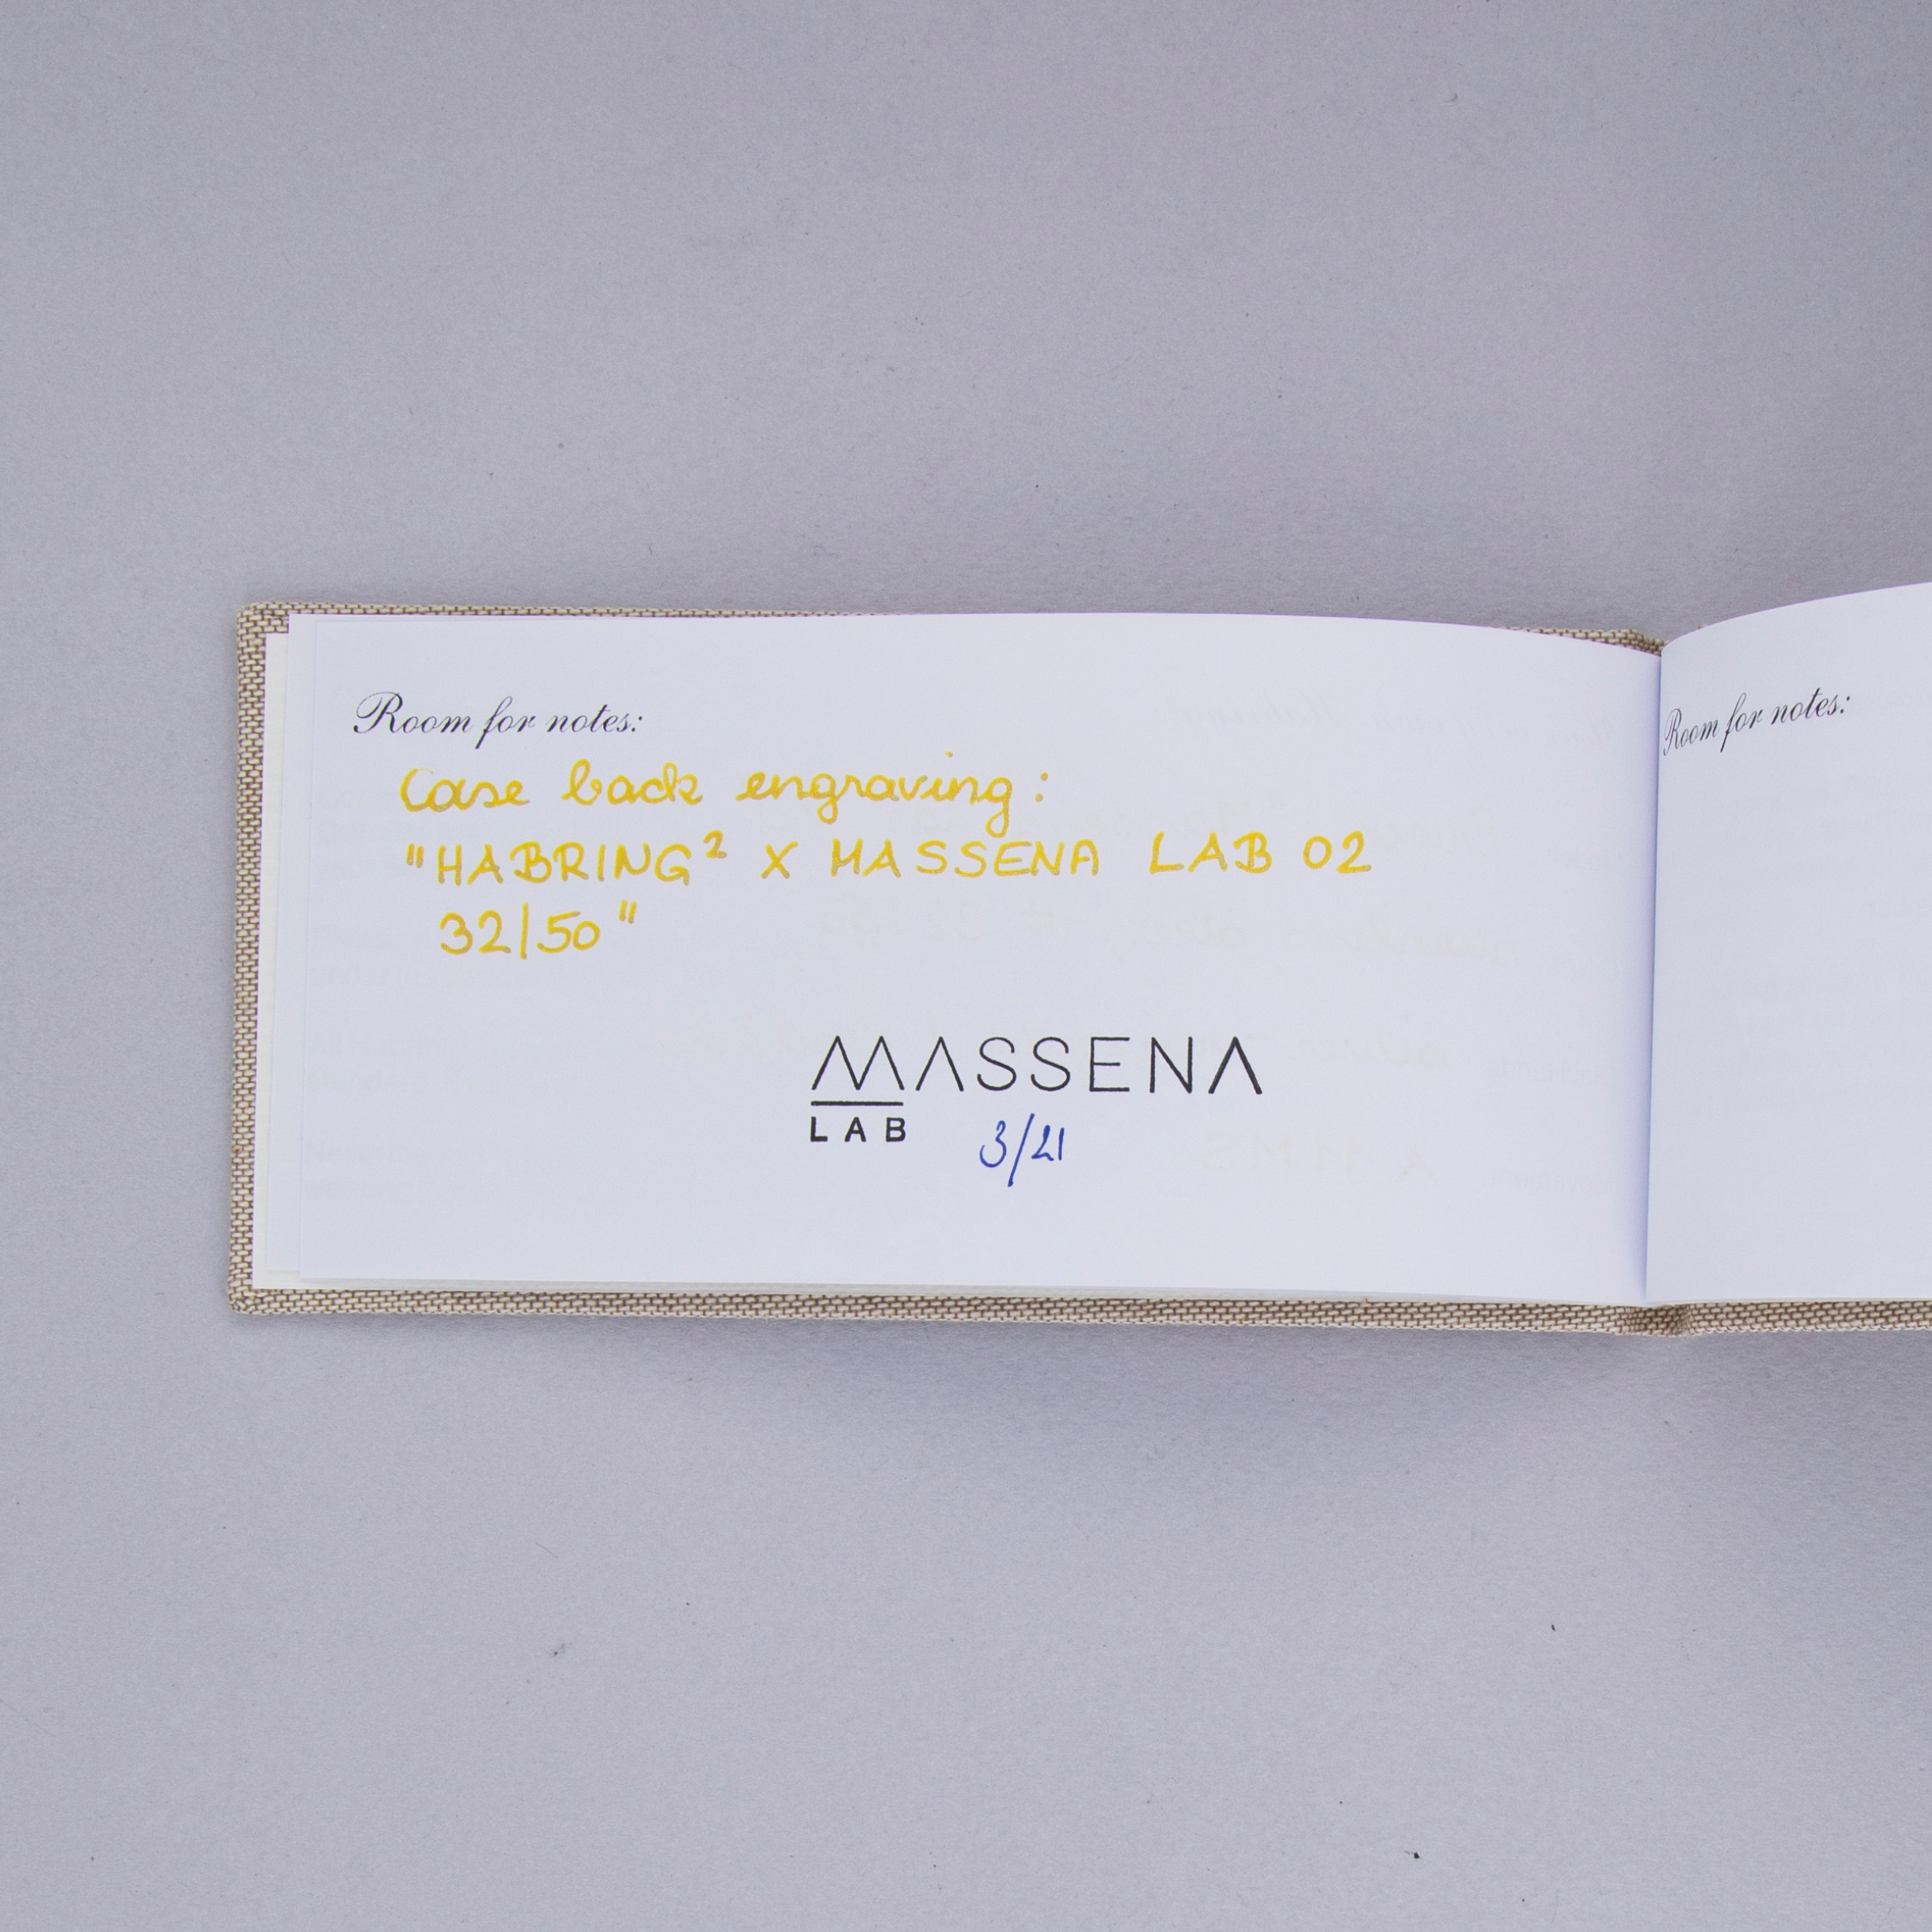 Room for notes:
Case back engraving:
"HABRING² X MASSENA LAB 02
32/50"
MASSENA
LAB
3/21
Room for notes: